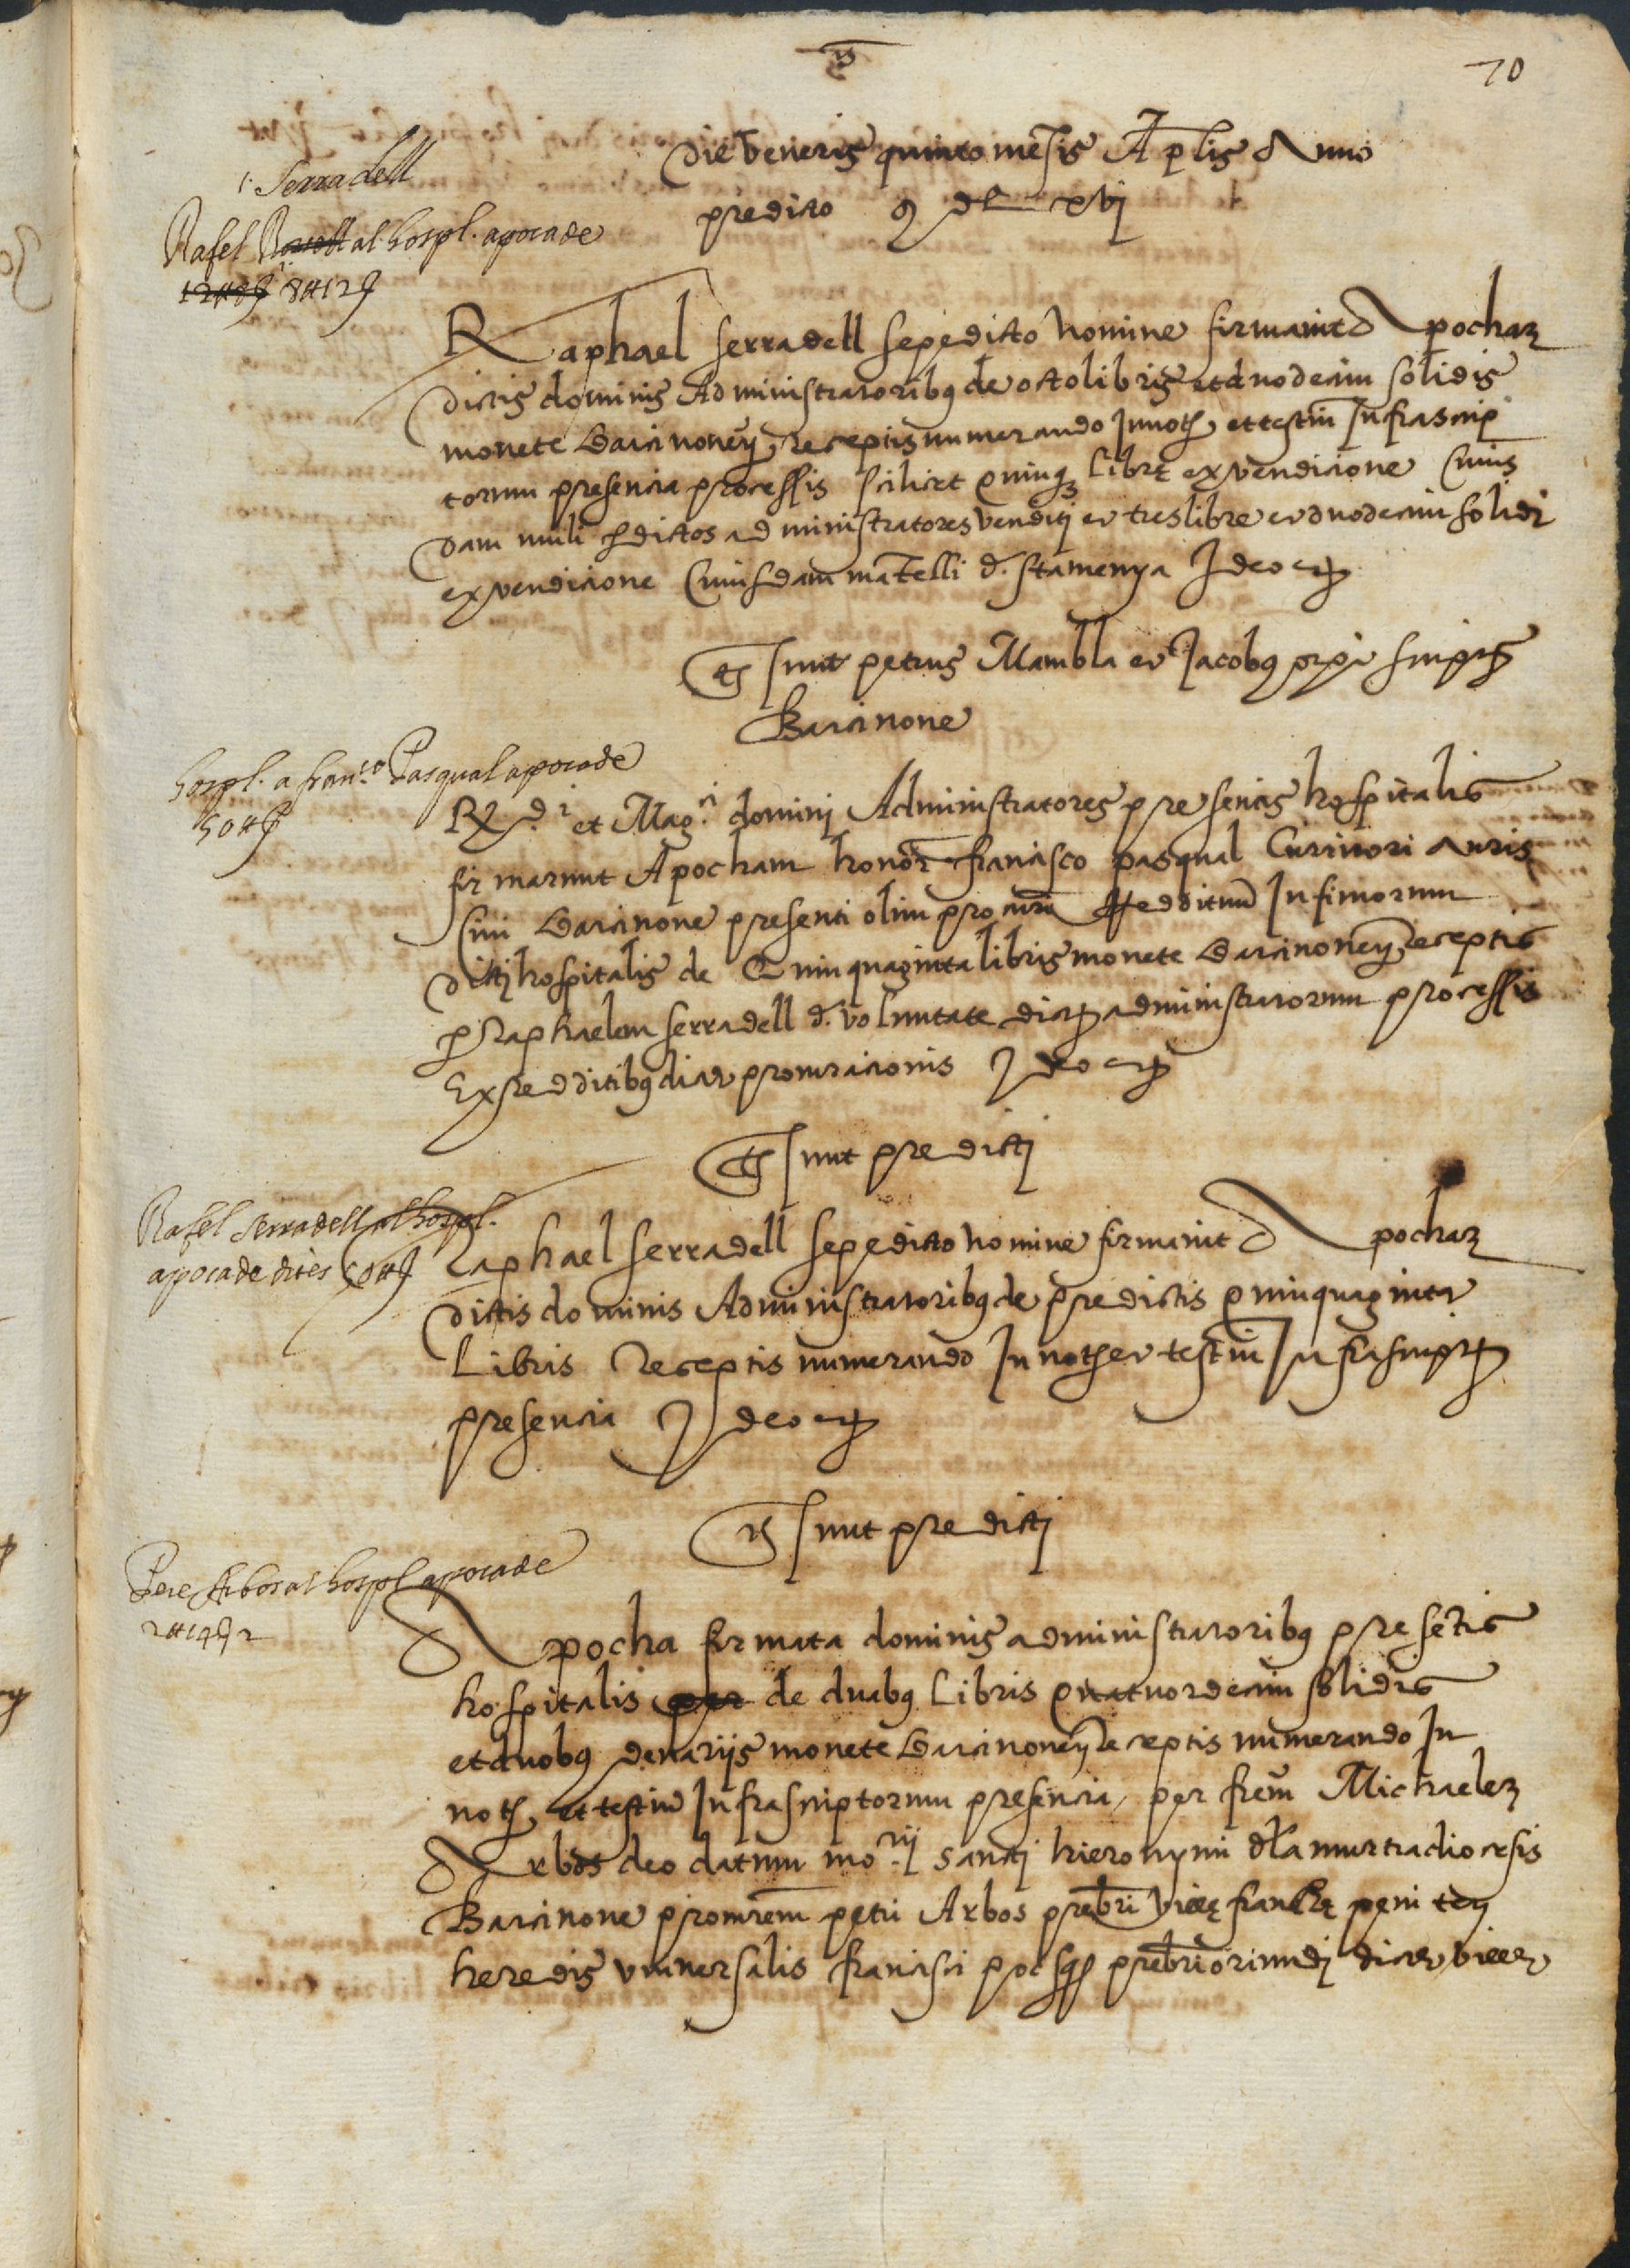 70
Die veneris quinto mēsis Aplis Anno
predicto
Serradell
Rafel al hospl. apocade
12 ## 8 ʃ 8 ## 12 ʃ
Raphael serradell sepedicto nomine firmavit Apochaz
dictis dominis Administratoribꝰ de octo libris et duodecim solidis
monete Barcinoneñ receptis numerando In notȷ et testiū Infrascrip
torum presencia processis scilicet quinqz librę ex vendicione Cuius
dam muli ꝑ dictos administratores venditj et tres libre et duodecim solidi
ex vendicione Cuiusdam mātelli d. stamenya Ideo etc
ts sunt petrus Mambla et Jacobꝰ scriptꝭ
Barcinone
hospl. a franco. Pasqual apocade
50 ## ʃ
Rdi. et Magci. dominj Administratores presentis hospitalis
firmarunt Apocham honor francisco pasqual Curritori auris
Civi Barcinone presenti olim procura Reddituū Infimorum
dictj hospitalis de Quinquaginta libris monete Barcinoneñ receptis
ꝑ Raphaelem serradell d. voluntate dictoꝝ administratorum processis
Ex redditibꝰ dicte procuracionis Ideo etc
ts sunt predictj
Rafel serradell al hospl.
apocade dites 50 ## ʃ
Raphael serradell sepedicto nomine firmavit Apochaz
dictis dominis Administratoribꝰ de predictis quinquaginta
Libris Receptis numerando In notȷ et testiū Infrascriptoꝝ
presencia Ideo etc
ts sunt predictj
Pere Arbos al hospl apocade
2 ## 14 ʃ 2
Apocha firmata dominis administratoribꝰ presētis
hospitalis per de duabꝰ Libris quatuordecim solidis
et duobꝰ denarijs monete Barcinoneñ receptis numerando In
notȷ et testiū Infrascriptorum presencia per frem̄ Michaelez
Arbos deo datum morij. sanctj hieronymi d̄la murtra diocesis
Barcinone procurem̄ petri Arbos prebr̄i ville franchę peniteñ
heredis universalis francisci prebr̄i oriundj dicte ville